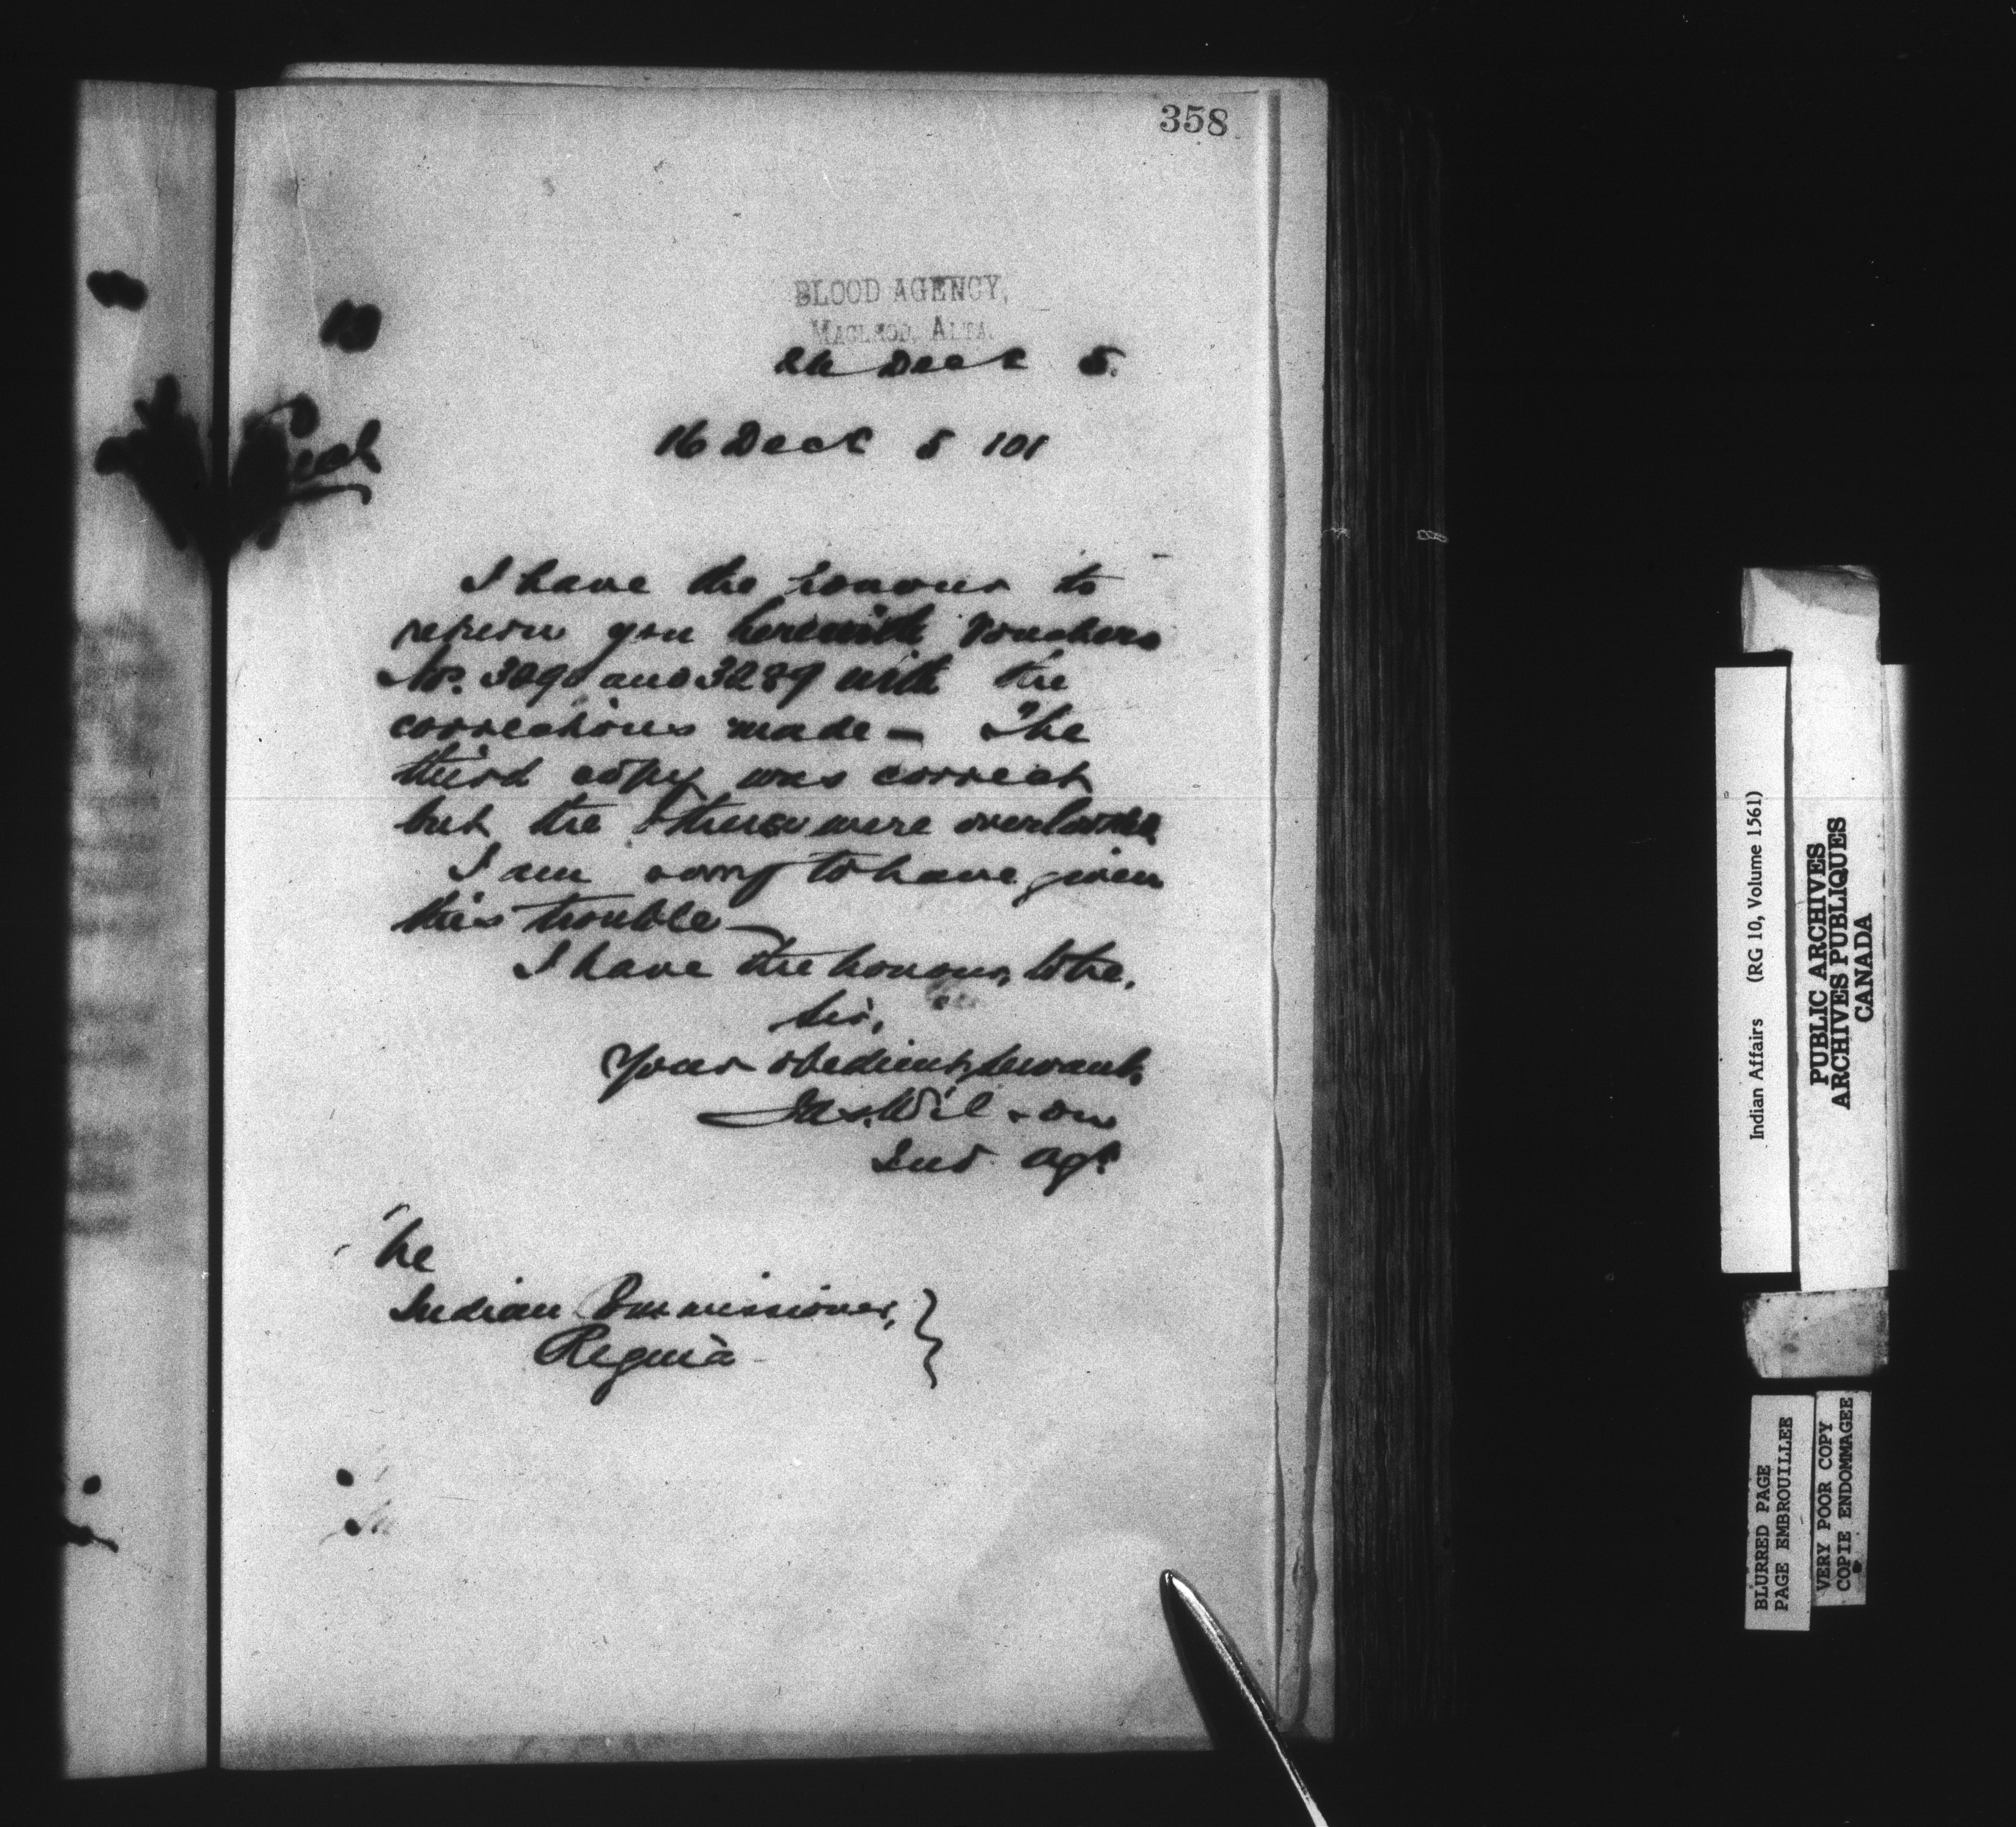 358
BLOOD AGENCY,
MACLEOD, ALTA.
26 Dect 5.
16 Dect 5 101
I have the honour to
return you herewith Vouchers
No. 3290 and 3289 with the
corrections made — The
third copy was correct
but the others were overlooked
I am sorry to have given
this trouble —
I have the honour, to be,
Sir,
Your obedient servant,
Jas. Wilson
Ind. Agt
The
Indian Commissioner,
Regina
Indian Affairs (RG 10, Volume 1561)
PUBLIC ARCHIVES
ARCHIVES PUBLIQUES
CANADA
BLURRED PAGE
PAGE EMBROUILLEE
VERY POOR COPY
COPIE ENDOMMAGEE